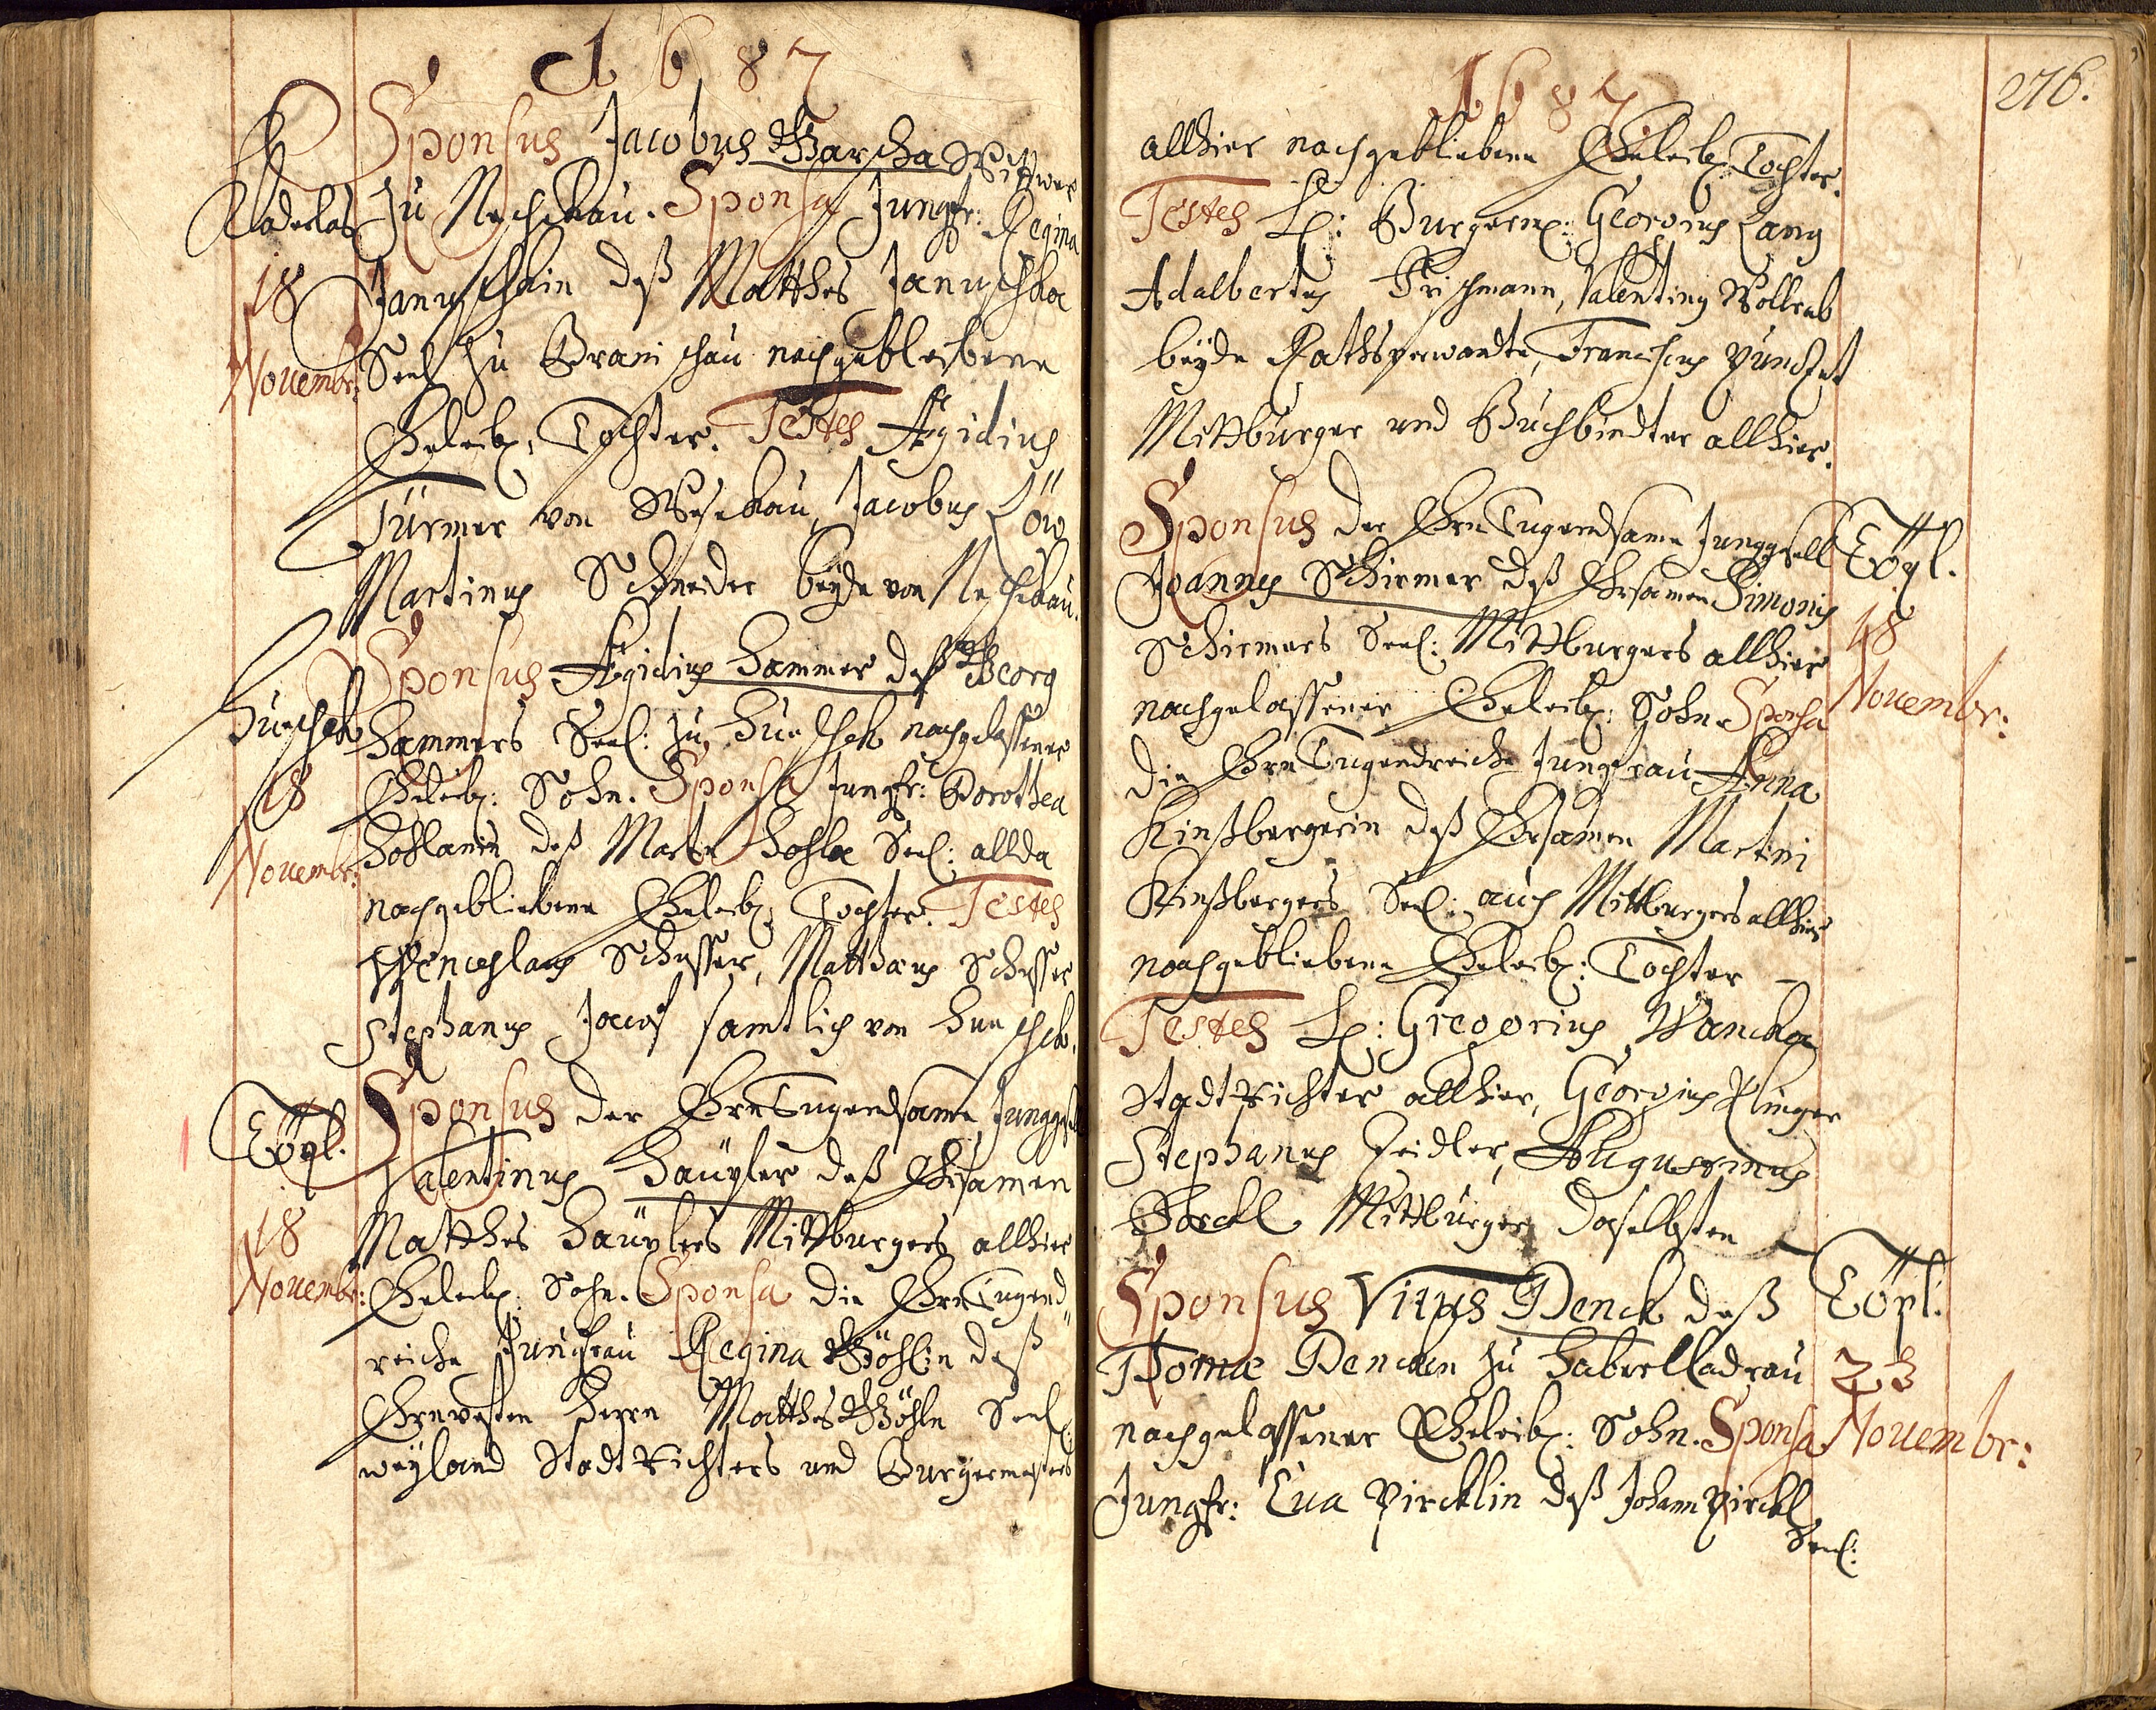 1687
Sponsus Jacobus Warscha Wittwer
zu Neschikau. Sponsa Jungfr: Regina
Januschkin deß Matthes Januschka
Seel. zu Branischau nachgebliebene
Eheleibl. Tochter. Testes Ægidius
Türmer von Weserkau, Jacobus Löw
Martinus Schneider beyde von Neschikau.
Radeslas
18
Novembr:
Sponsus Ægidius Hammer deß Georg
Hammers Seel: zu Hurschk nachgelassener
Eheleibl: Sohn. Sponsa Jungfr: Dorothea
deß Hoskla Seel: allda
nachgebliebene Eheleibl: Tochter. Testes
Wenceslaus Schusser, Matthæus Schusser
Stephanus Jacob samtlich von Hurschk.
Hurschk
18
Novembr:
Sponsus der EhrnTugendsame Junggsell
Valentinus Häuyler deß Ehrsamen
Matthes Häuylers Mittburgers allhier
Eheleibl: Sohn. Sponsa die EhrnTugend
reiche Jungfrau Regina Wöhlin deß
Ehrnvesten Herrn Matthes Wöhln Seel:
weyland Stadt Richters und Burgermeisters
Töpl.
18
Novembr:
1687
276.
allhier nachgebliebene Eheleibl: Tochter.
Testes H: Burgerm: Georgius Lang
Adalbertus Frischmann, Valentinus Wollrab
beyde Rathsverwandte, Franciscus
Mittburger und Buchbindter allhier.
Sponsus der EhrnTugendsame Junggsell
Joannes Schirmer deß Ehrsamen Simonis
Schirmers Seel: Mittburgers allhier
nachgelassener Eheleibl: Sohn. Sponsa
die EhrnTugendreiche Jungfrau Anna
Kinßbergerin deß Ehrsamen Martini
Kinßbergers Seel: auch Mittburgers allhier
nachgebliebene Eheleibl: Tochter
Testes H: Gregorius Wancka
Stadt Richter allhier, Georgius Klinger
Stephanus Zeidler, Augustinus
Borckl Mittburger daselbsten
Töpl.
18
Novembr:
Sponsus Vitus Denck deß
Thomæ Dencken zu Haberlladrau
nachgelassener Eheleibl: Sohn. Sponsa
Jungfr: Eva Pircklin deß Johann Pirckl
Seel:
Töpl:
23
Novembr: